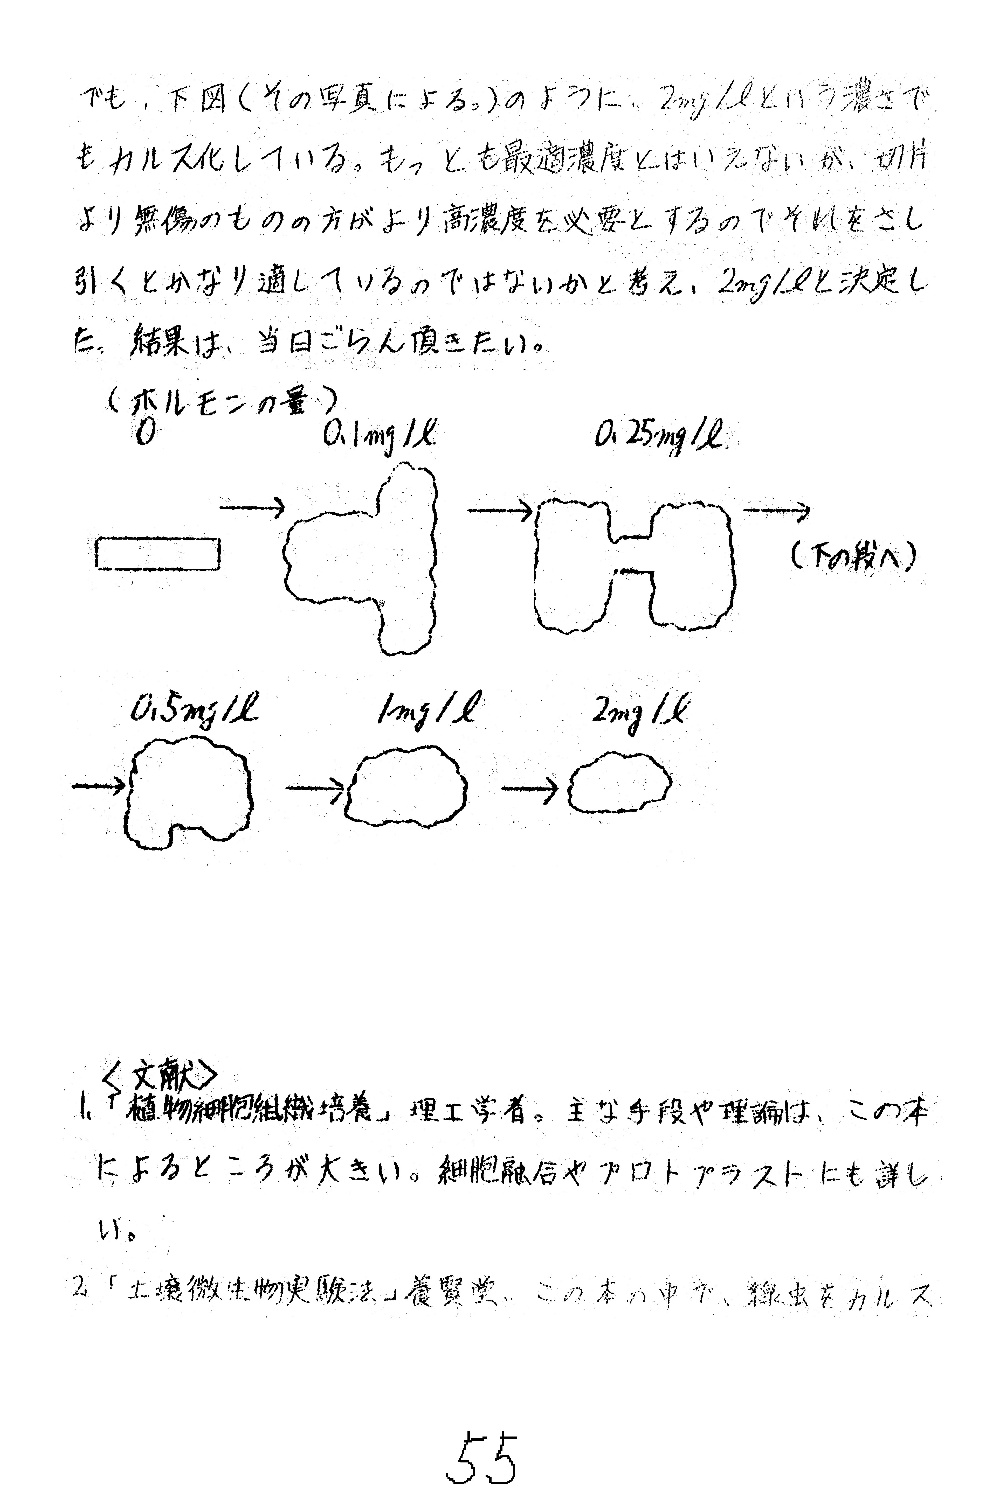 でも、下図(その写真による。)のように、2mg/lという濃さで
もカルス化している。もっとも最適濃度とはいえないが、切片
より無傷のものの方がより高濃度を必要とするのでそれをさし
引くとかなり適しているのではないかと考え、2mg/lと決定し
た。結果は、当日ごらん頂きたい。
(ホルモンの量)
0 0.1mg/l 0.25mg/l
(下の段へ)
0.5mg/l 1mg/l 2mg/l
<文献>
1.「植物細胞組織培養」理工学者。主な手段や理論は、この本
によるところが大きい。細胞融合やプロトプラストにも詳し
い。
2.「土壌微生物実験法」養賢堂。この本の中で、線虫をカルス
55